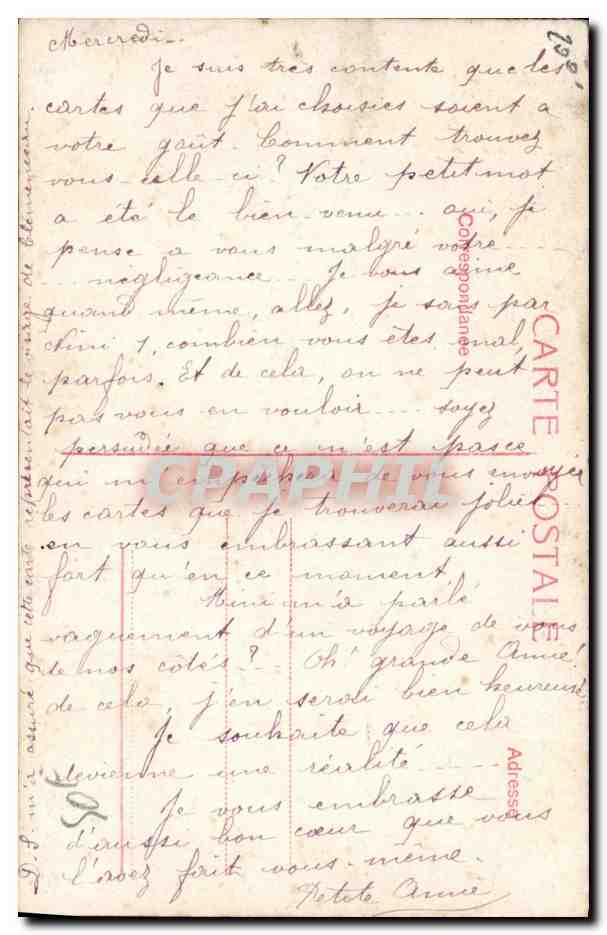 Mercredi.
Je suis très contente que les
cartes que j'ai choisies soient à
votre goût. Comment trouvez
vous celle ci? Votre petit mot
a été le bien venu... oui, je
pense à vous malgré votre
... négligeance... Je vous aime
quand même, allez, je sais par
combien vous êtes mal,
parfois. Et de cela, on ne peut
pas vous en vouloir.... soyez
persuadée que ce n'est pas ce
qui m'empêchera de vous envoyer
les cartes que je trouverai jolies
en vous embrassant aussi
fort qu'en ce moment.
Mimi m'a parlé
vaguement d'un voyage de vous
de nos côtés? Oh! grande Amie!
de cela, j'en serai bien heureuse.
Je souhaite que cela
devienne une réalité
Je vous embrasse
d'aussi bon cœur que vous
l'avez fait vous-même.
Petite Amie
m'a assuré que cette carte représentait le
CARTE POSTALE
Correspondance
Adresse
CPAPHIL